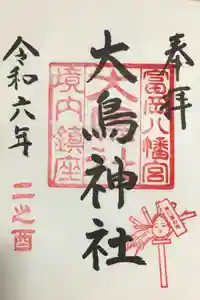 奉拝
富岡八幡宮
大鳥神社
境内鎮座
令和六年
二之酉